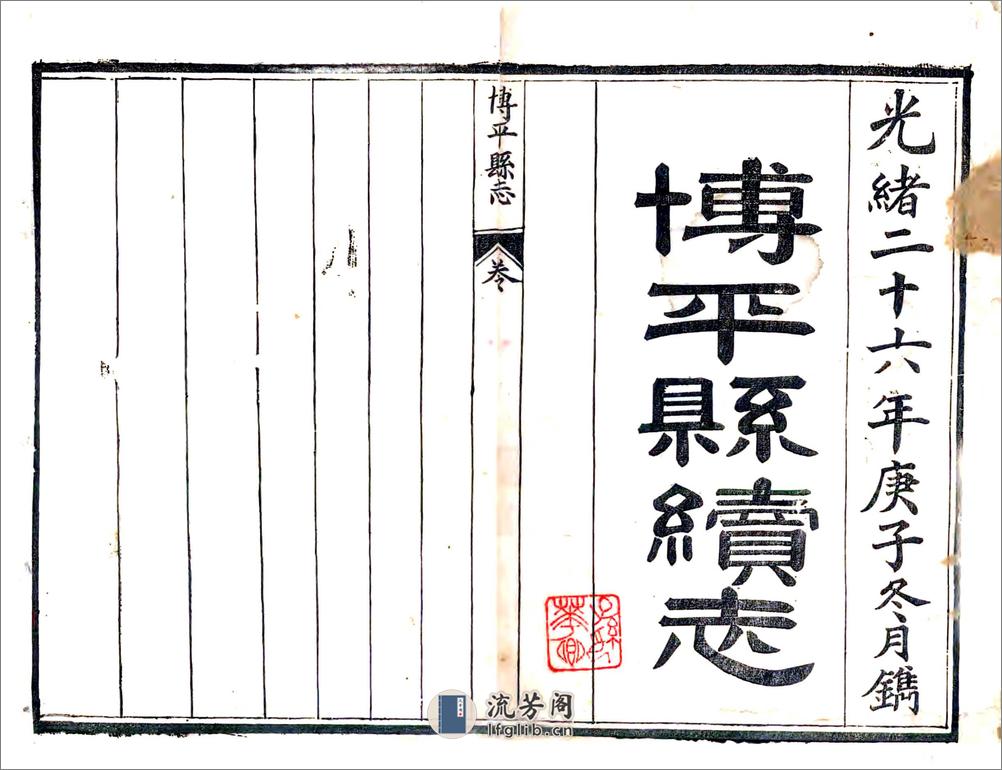 光緒二十六年庚子冬月鐫
博平縣續志
博平縣志
卷
流芳阁
lfglib.cn